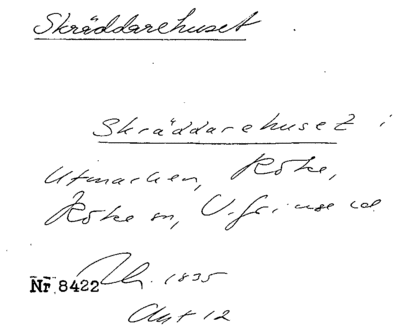 Skräddarehuset
Skräddarehuset i
Utmarken, Röke,
Röke sn, V. Göinge hd
Nr 8422 Lh. 1835
Akt 12